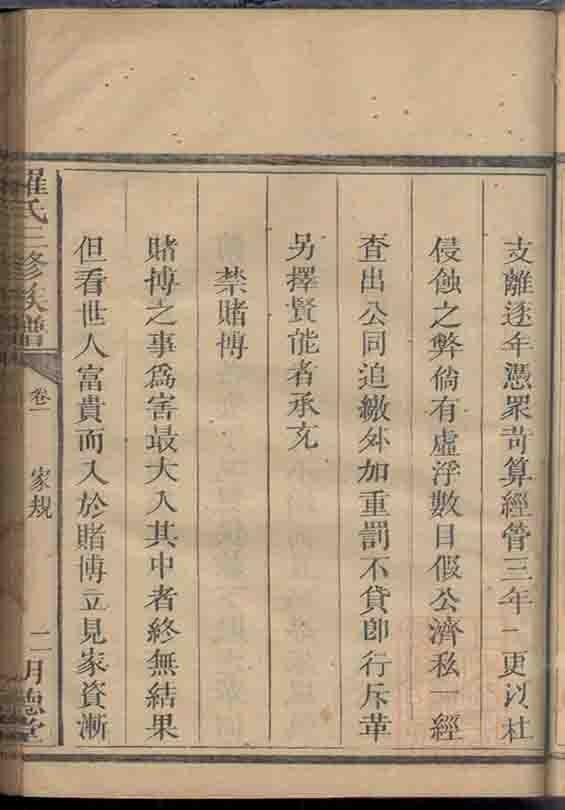 支離逐年憑眾苛算經管三年一更以杜
侵蝕之弊倘有虛浮數目假公濟私一經
查出公同追繳外加重罰不貸即行斥革
另擇賢能者承充
禁賭博
賭博之事為害最大入其中者終無結果
但看世人富貴而入於賭博立見家資漸
羅氏三修族譜 卷一 家規 二 明德堂